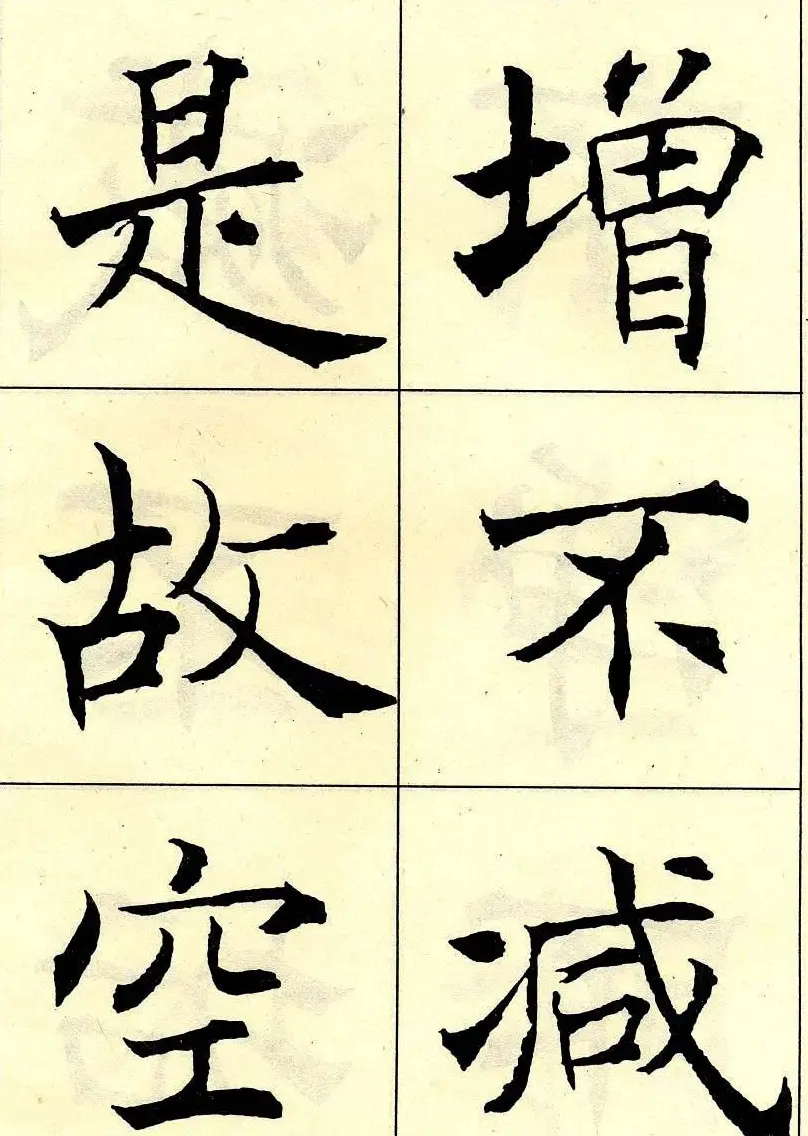 增不减
是故空